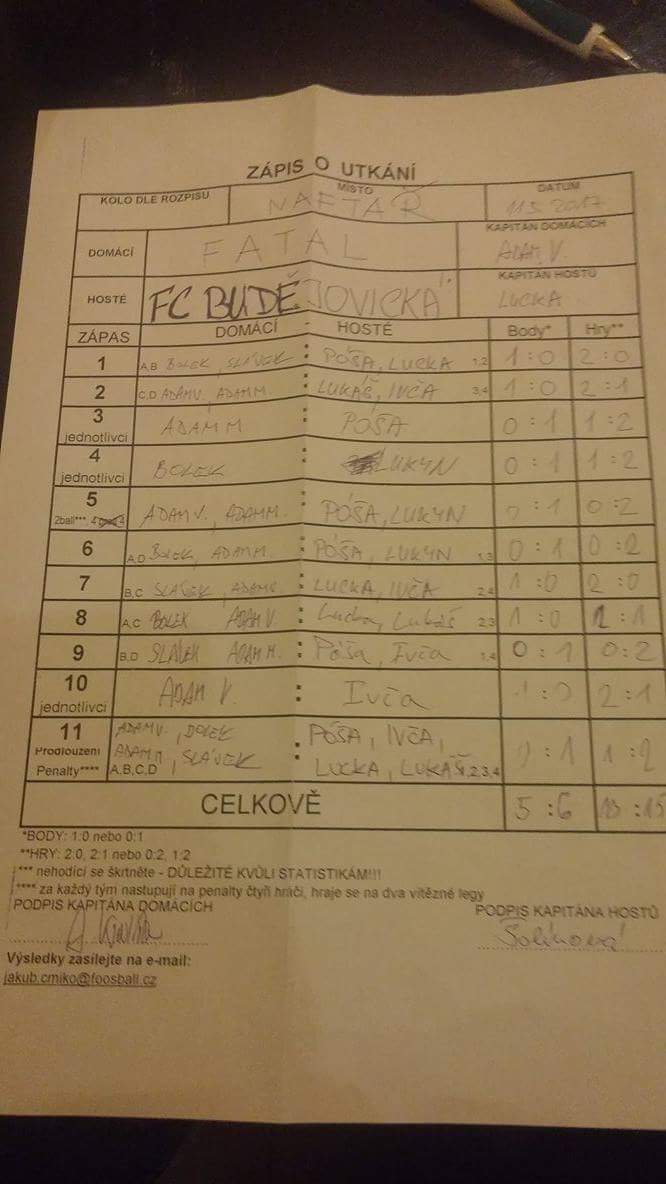 ZÁPIS O UTKÁNÍ
KOLO DLE ROZPISU MÍSTO NAFTAŘ DATUM 11.5.2017
DOMÁCÍ FATAL KAPITÁN DOMÁCÍCH ADAM V.
HOSTÉ FC BUDĚJOVICKÁ KAPITÁN HOSTŮ LUCKA
ZÁPAS DOMÁCÍ : HOSTÉ Body* Hry**
1 A,B BOLEK, SLÁVEK : PÓŠA, LUCKA 1,2 1:0 2:0
2 C,D ADAM V., ADAM M. : LUKÁŠ, IVČA 3,4 1:0 2:1
3 jednotlivci ADAM M : PÓŠA 0:1 1:2
4 jednotlivci BOLEK : LUKYN 0:1 1:2
5 2ball***, ADAM V., ADAM M. : PÓŠA, LUKYN 0:1 0:2
6 A,D BOLEK, ADAM M. : PÓŠA, LUKYN 1,3 0:1 0:2
7 B,C SLÁVEK, : LUCKA, IVČA 2,4 1:0 2:0
8 A,C BOLEK ADAM V. : Lucka, Lukáš 2,3 1:0 2:1
9 B,D SLÁVEK ADAM M. : Póša, Ivča 1,4 0:1 0:2
10 jednotlivci ADAM V. : Ivča 1:0 2:1
11 ADAM V., BOLEK PÓŠA, IVČA,
Prodloužení ADAM M, SLÁVEK : 0:1 1:2
Penalty**** A,B,C,D LUCKA, LUKÁŠ 1,2,3,4
CELKOVĚ 5:6 13:15
*BODY: 1:0 nebo 0:1
**HRY: 2:0, 2:1 nebo 0:2, 1:2
*** nehodící se škrtněte - DŮLEŽITÉ KVŮLI STATISTIKÁM!!!
**** za každý tým nastupují na penalty čtyři hráči, hraje se na dva vítězné legy
PODPIS KAPITÁNA DOMÁCÍCH PODPIS KAPITÁNA HOSTŮ
Výsledky zasílejte na e-mail:
jakub.crniko@foosball.cz